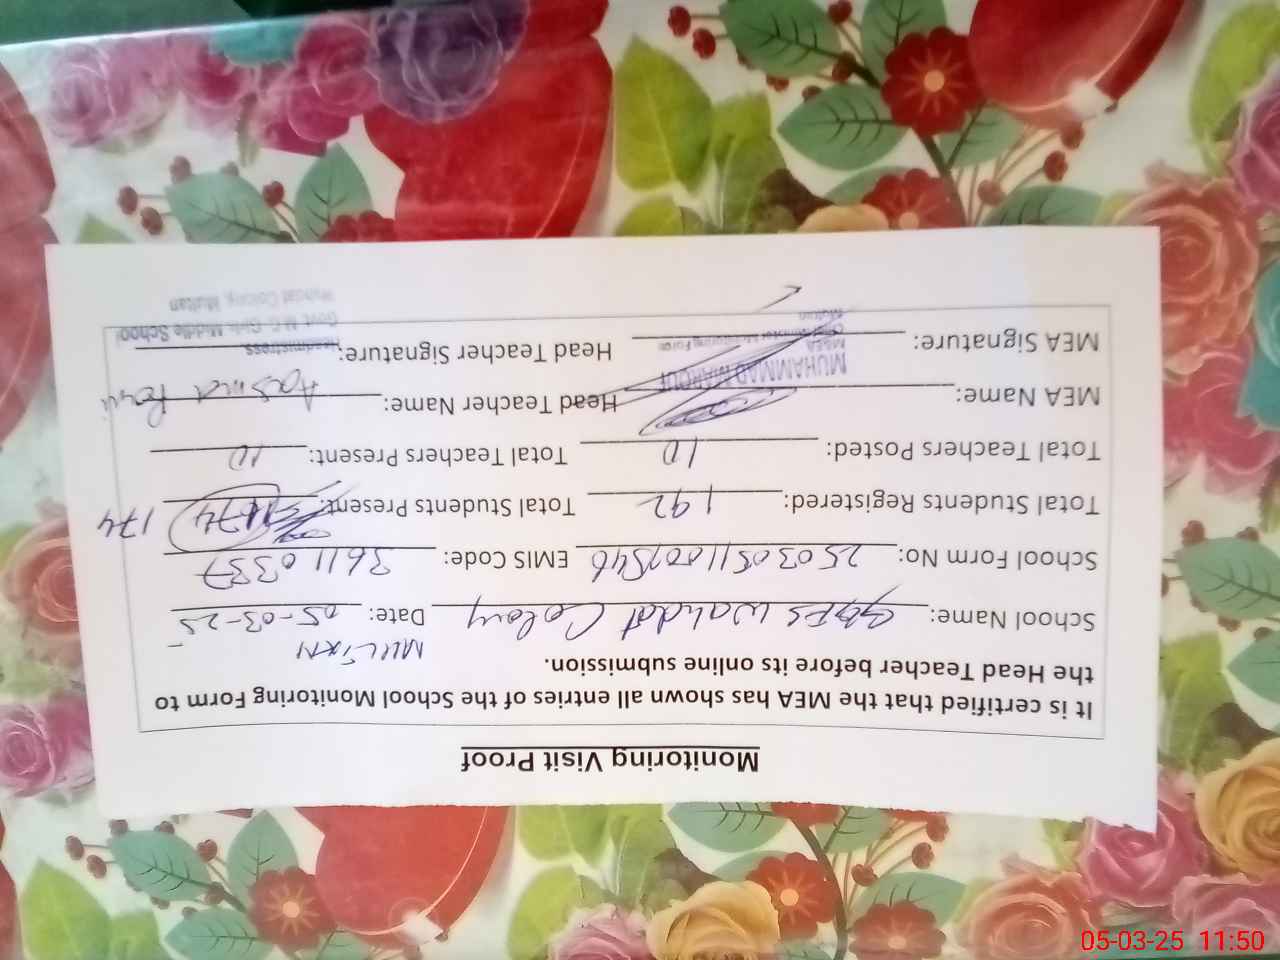 Monitoring Visit Proof
It is certified that the MEA has shown all entries of the School Monitoring Form to
the Head Teacher before its online submission.
MULTAN
School Name: Wahdat Colony Date: 05-03-25
School Form No: EMIS Code: 36110337
Total Students Registered: 192 Total Students Present: 174 174
Total Teachers Posted: 10 Total Teachers Present: 10
MEA Name: Head Teacher Name: Aasma
MUHAMMAD MAROUF
MEA Signature: Head Teacher Signature:
M&EA
Chief Minister Monitoring Force
Multan
Headmistress
Govt. M.C. Girls Middle School
Wahdat Colony, Multan
05-03-25 11:50